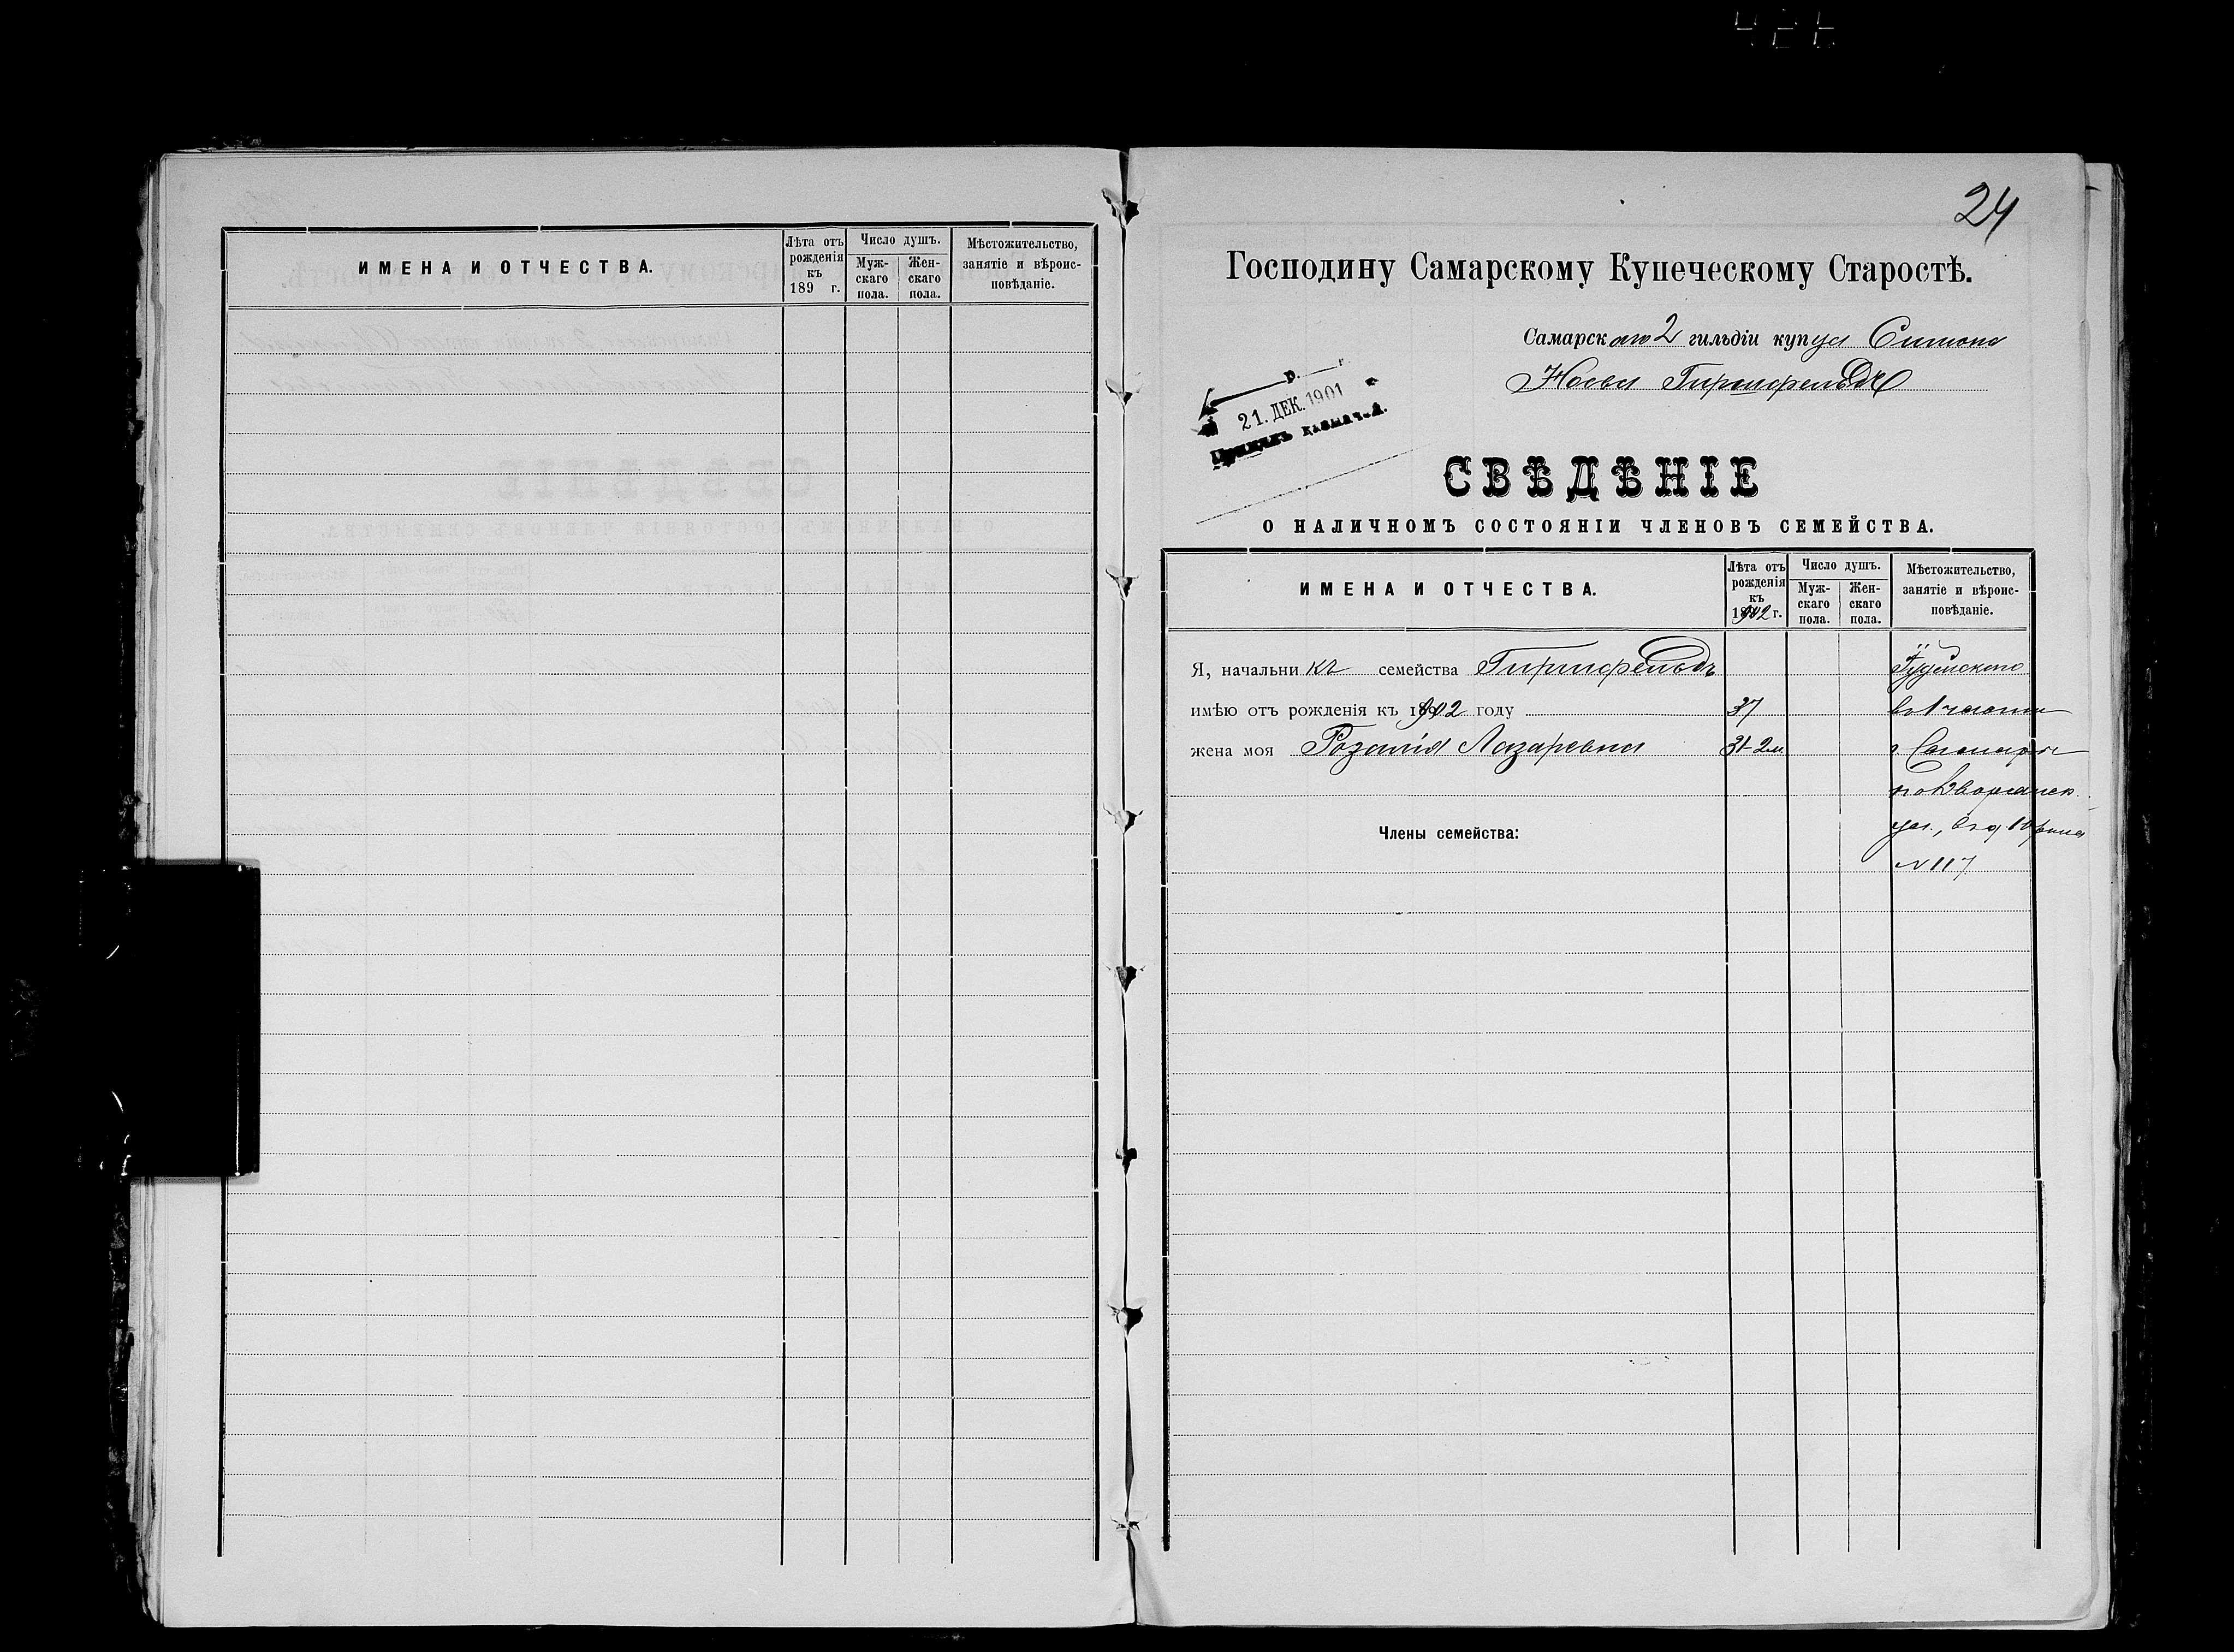 ИМЕНА И ОТЧЕСТВА.
Лѣта отъ рожденія къ 189 г.
Число душъ.
Муж-скаго пола.
Жен-скаго пола.
Мѣстожительство, занятіе и вѣроис-повѣданіе.
24
Господину Самарскому Купеческому Старостѣ.
Самарскаго 2 гильдіи купца Симона
Ноева Гиршфельдъ
21. ДЕК. 1901
СВѢДѢНІЕ
О НАЛИЧНОМЪ СОСТОЯНІИ ЧЛЕНОВЪ СЕМЕЙСТВА.
ИМЕНА И ОТЧЕСТВА.
Лѣта отъ рожденія къ 1902 г.
Число душъ.
Муж-скаго пола.
Жен-скаго пола.
Мѣстожительство, занятіе и вѣроис-повѣданіе.
Я, начальникъ семейства Гиршфельдъ Іудейскаго
имѣю отъ рожденія къ 1902 году 37 во 1 части
жена моя Розалія Лазаревна 31-2м г. Самары
по Дворянск.
Члены семейства: ул.,
№ 117